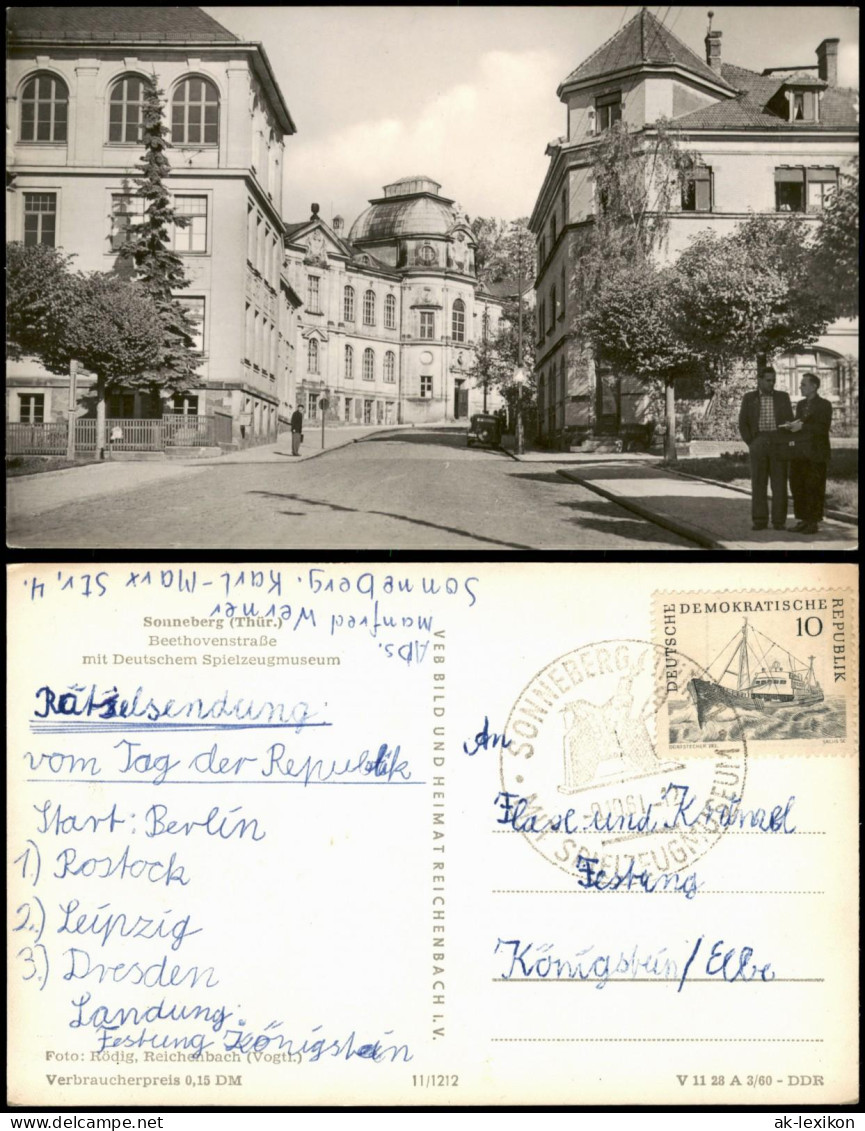 Sonneberg (Thür.)
Beethovenstraße
mit Deutschem Spielzeugmuseum
Abs.
Manfred Werner
Sonneberg. Karl-Marx Str, 4.
Rätselsendung:
vom Tag der Republik
Start: Berlin
1.) Rostock
2.) Leipzig
3.) Dresden
Landung:
Festung Königstein
Foto: Rödig, Reichenbach (Vogtl.)
Verbraucherpreis 0,15 DM
11/1212
VEB BILD UND HEIMAT REICHENBACH i. V.
DEUTSCHE DEMOKRATISCHE REPUBLIK
10
SONNEBERG
MIT SPIELZEUGMUSEUM
An
Flax und Krümel
Festung
Königstein/Elbe
V 11 28 A 3/60 - DDR
ak-lexikon